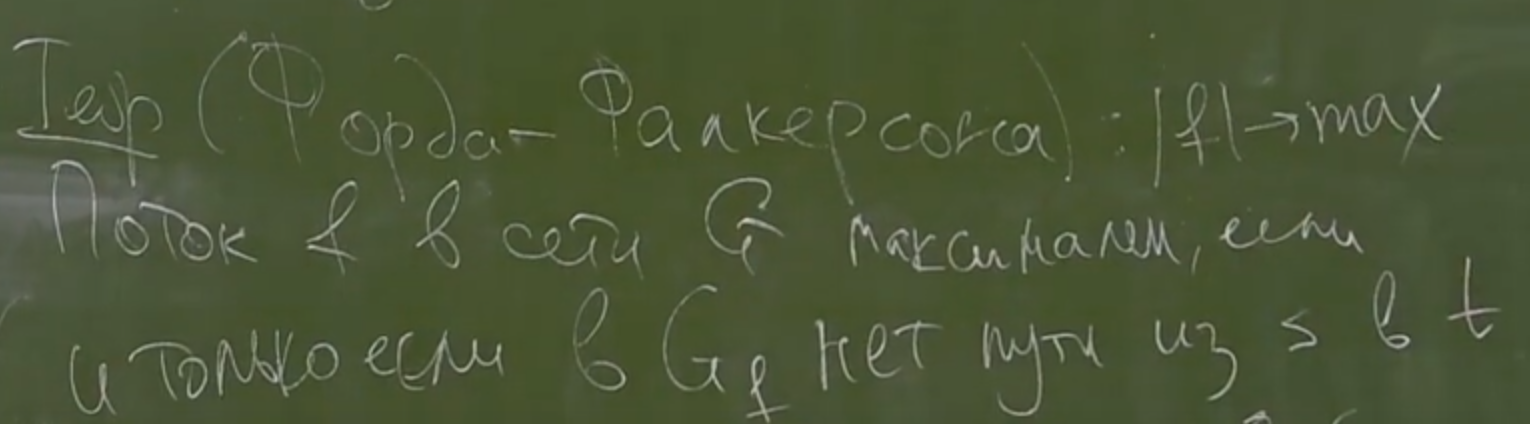 Теор (Форда-Фалкерсона): |f|→max
Поток f в сети G максимален, если
и только если в G_f нет пути из s в t